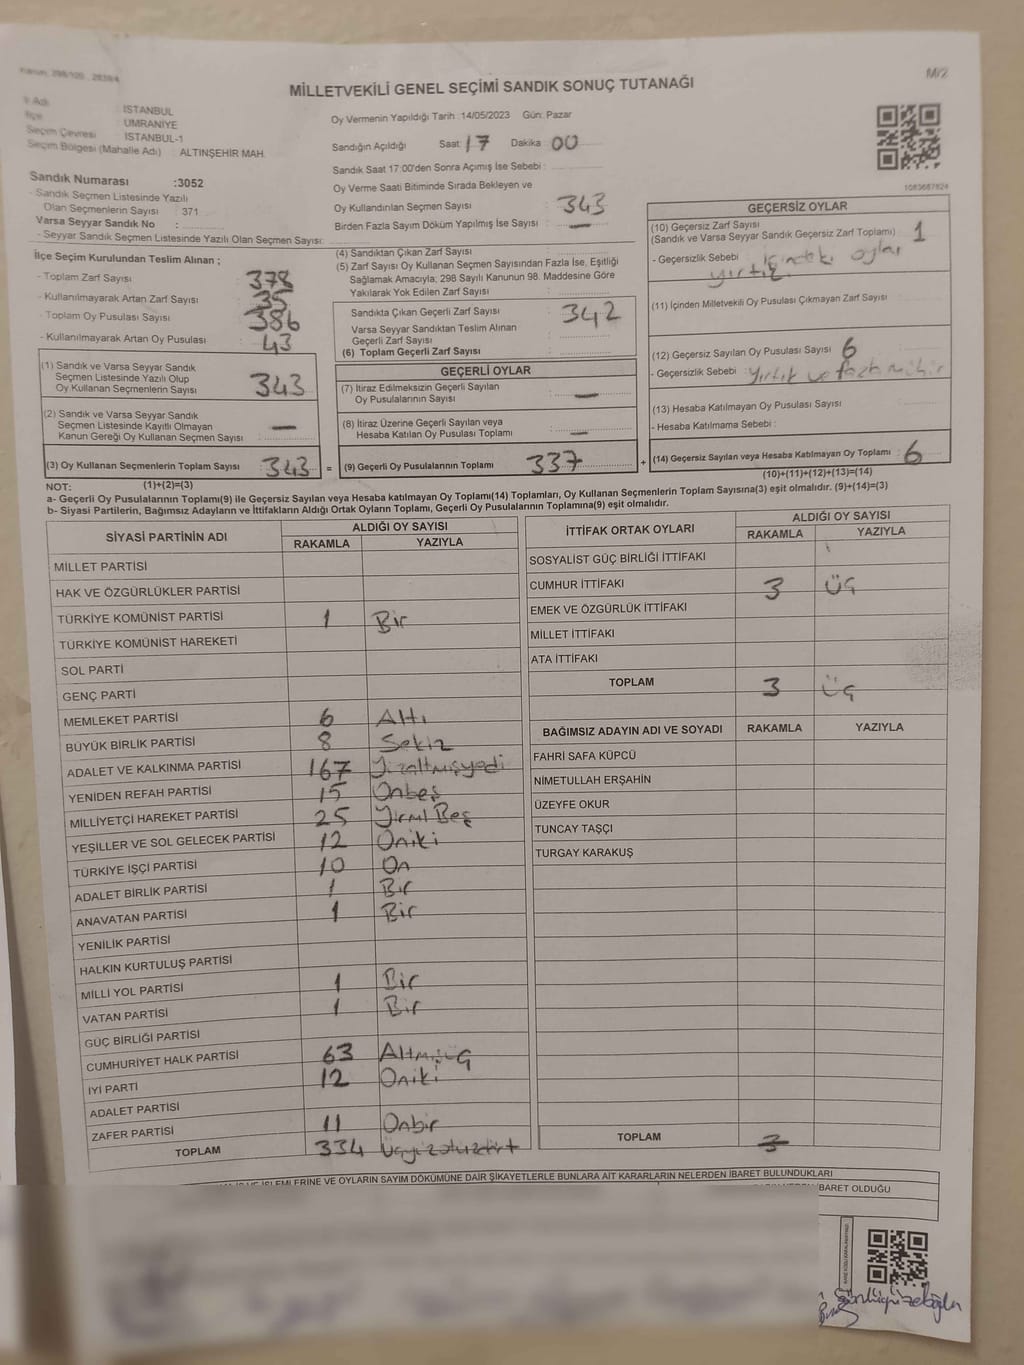 Kanun: 298/105 , 2839/4
M/2
MİLLETVEKİLİ GENEL SEÇİMİ SANDIK SONUÇ TUTANAĞI
İl Adı : İSTANBUL
İlçe : ÜMRANİYE
Seçim Çevresi : İSTANBUL-1
Seçim Bölgesi (Mahalle Adı) : ALTINŞEHİR MAH.
Oy Vermenin Yapıldığı Tarih : 14/05/2023 Gün: Pazar
Sandığın Açıldığı Saat 17 Dakika 00
Sandık Saat 17:00'den Sonra Açımış İse Sebebi :
Oy Verme Saati Bitiminde Sırada Bekleyen ve
Oy Kullandırılan Seçmen Sayısı : 343
Birden Fazla Sayım Döküm Yapılmış İse Sayısı : —
1083687824
Sandık Numarası :3052
- Sandık Seçmen Listesinde Yazılı
Olan Seçmenlerin Sayısı : 371
Varsa Seyyar Sandık No :
- Seyyar Sandık Seçmen Listesinde Yazılı Olan Seçmen Sayısı:
İlçe Seçim Kurulundan Teslim Alınan ;
- Toplam Zarf Sayısı : 378
- Kullanılmayarak Artan Zarf Sayısı : 35
- Toplam Oy Pusulası Sayısı : 386
- Kullanılmayarak Artan Oy Pusulası : 43
(1) Sandık ve Varsa Seyyar Sandık
Seçmen Listesinde Yazılı Olup
Oy Kullanan Seçmenlerin Sayısı : 343
(2) Sandık ve Varsa Seyyar Sandık
Seçmen Listesinde Kayıtlı Olmayan
Kanun Gereği Oy Kullanan Seçmen Sayısı : —
(3) Oy Kullanan Seçmenlerin Toplam Sayısı : 343 =
(4) Sandıktan Çıkan Zarf Sayısı :
(5) Zarf Sayısı Oy Kullanan Seçmen Sayısından Fazla İse, Eşitliği
Sağlamak Amacıyla; 298 Sayılı Kanunun 98. Maddesine Göre
Yakılarak Yok Edilen Zarf Sayısı :
Sandıkta Çıkan Geçerli Zarf Sayısı : 342
Varsa Seyyar Sandıktan Teslim Alınan
Geçerli Zarf Sayısı :
(6) Toplam Geçerli Zarf Sayısı :
GEÇERLİ OYLAR
(7) İtiraz Edilmeksizin Geçerli Sayılan
Oy Pusulalarının Sayısı : —
(8) İtiraz Üzerine Geçerli Sayılan veya
Hesaba Katılan Oy Pusulası Toplamı : —
(9) Geçerli Oy Pusulalarının Toplamı : 337 +
GEÇERSİZ OYLAR
(10) Geçersiz Zarf Sayısı
(Sandık ve Varsa Seyyar Sandık Geçersiz Zarf Toplamı) : 1
- Geçersizlik Sebebi : içindeki oylar
yırtık
(11) İçinden Milletvekili Oy Pusulası Çıkmayan Zarf Sayısı :
(12) Geçersiz Sayılan Oy Pusulası Sayısı : 6
- Geçersizlik Sebebi : yırtık ve fazla mühür
(13) Hesaba Katılmayan Oy Pusulası Sayısı :
- Hesaba Katılmama Sebebi :
(14) Geçersiz Sayılan veya Hesaba Katılmayan Oy Toplamı : 6
NOT: (1)+(2)=(3)
(10)+(11)+(12)+(13)=(14)
a- Geçerli Oy Pusulalarının Toplamı(9) ile Geçersiz Sayılan veya Hesaba katılmayan Oy Toplamı(14) Toplamları, Oy Kullanan Seçmenlerin Toplam Sayısına(3) eşit olmalıdır. (9)+(14)=(3)
b- Siyasi Partilerin, Bağımsız Adayların ve İttifakların Aldığı Ortak Oyların Toplamı, Geçerli Oy Pusulalarının Toplamına(9) eşit olmalıdır.
SİYASİ PARTİNİN ADI ALDIĞI OY SAYISI
RAKAMLA YAZIYLA
MİLLET PARTİSİ
HAK VE ÖZGÜRLÜKLER PARTİSİ
TÜRKİYE KOMÜNİST PARTİSİ 1 Bir
TÜRKİYE KOMÜNİST HAREKETİ
SOL PARTİ
GENÇ PARTİ
MEMLEKET PARTİSİ 6 Altı
BÜYÜK BİRLİK PARTİSİ 8 Sekiz
ADALET VE KALKINMA PARTİSİ 167 Yüzaltmışyedi
YENİDEN REFAH PARTİSİ 15 Onbeş
MİLLİYETÇİ HAREKET PARTİSİ 25 Yirmi Beş
YEŞİLLER VE SOL GELECEK PARTİSİ 12 Oniki
TÜRKİYE İŞÇİ PARTİSİ 10 On
ADALET BİRLİK PARTİSİ 1 Bir
ANAVATAN PARTİSİ 1 Bir
YENİLİK PARTİSİ
HALKIN KURTULUŞ PARTİSİ
MİLLİ YOL PARTİSİ 1 Bir
VATAN PARTİSİ 1 Bir
GÜÇ BİRLİĞİ PARTİSİ
CUMHURİYET HALK PARTİSİ 63 Altmışüç
İYİ PARTİ 12 Oniki
ADALET PARTİSİ
ZAFER PARTİSİ 11 Onbir
TOPLAM 334 üçyüzotuzdört
İTTİFAK ORTAK OYLARI ALDIĞI OY SAYISI
RAKAMLA YAZIYLA
SOSYALİST GÜÇ BİRLİĞİ İTTİFAKI
CUMHUR İTTİFAKI 3 Üç
EMEK VE ÖZGÜRLÜK İTTİFAKI
MİLLET İTTİFAKI
ATA İTTİFAKI
TOPLAM 3 Üç
BAĞIMSIZ ADAYIN ADI VE SOYADI RAKAMLA YAZIYLA
FAHRİ SAFA KÜPCÜ
NİMETULLAH ERŞAHİN
ÜZEYFE OKUR
TUNCAY TAŞÇI
TURGAY KARAKUŞ
TOPLAM 3
İŞLEMLERİNE VE OYLARIN SAYIM DÖKÜMÜNE DAİR ŞİKAYETLERLE BUNLARA AİT KARARLARIN NELERDEN İBARET BULUNDUKLARI
İBARET OLDUĞU